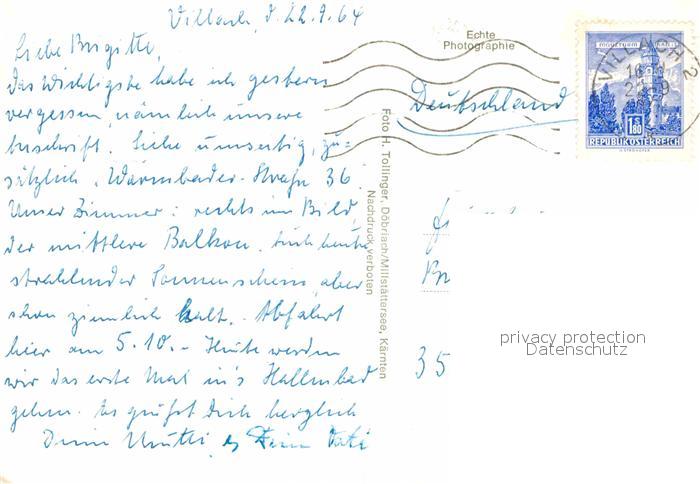 Villach, d. 22.9.64
Liebe Brigitte,
Das Wichtigste habe ich gestern
vergessen, nämlich unsere
Anschrift. Siehe umseitig, zu=
sätzlich: Warmbader-Straße 36.
Unser Zimmer: rechts im Bild,
der mittlere Balkon. Auch heute
strahlender Sonnenschein, aber
schon ziemlich kalt. Abfahrt
hier am 5.10. - Heute werden
wir das erste Mal in's Hallenbad
gehen. Es grüßt Dich herzlich
Deine Mutti u. Dein Vati
Echte
Photographie
Foto H. Tollinger, Döbriach/Millstättersee, Kärnten
Nachdruck verboten
Deutschland
VILLACH 2
1.80
REPUBLIK ÖSTERREICH
35
privacy protection
Datenschutz